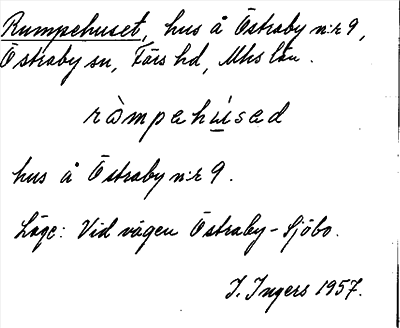 Rumpehuset, hus å Östraby nr 9,
Östraby sn, Färs hd, Mhs län.
ràmpahúsad
hus å Östraby nr 9.
Läge: Vid vägen Östraby-Sjöbo.
I. Ingers 1957.